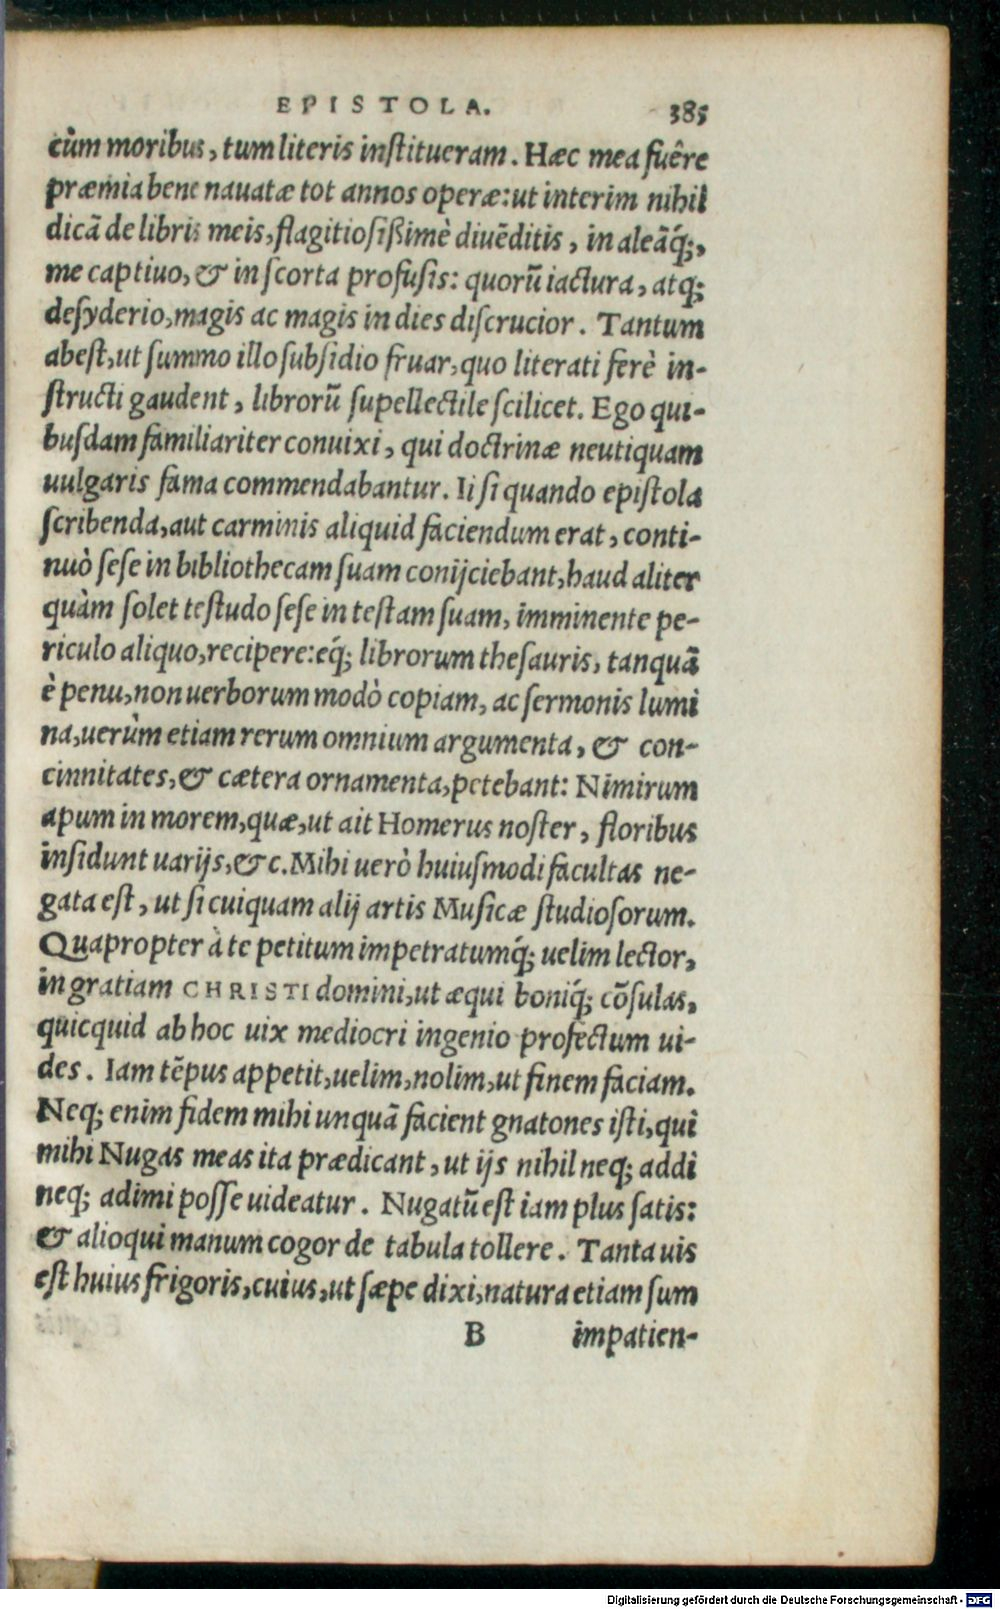 EPISTOLA. 385
cùm moribus, tum literis institueram. Hæc mea fuêre
præmia bene nauatæ tot annos operæ: ut interim nihil
dicã de libris meis, flagitiosißimè diuẽditis, in aleãq́;,
me captiuo, & in scorta profusis: quorũ iactura, atq;
desyderio, magis ac magis in dies discrucior. Tantum
abest, ut summo illo subsidio fruar, quo literati ferè in-
structi gaudent, librorũ supellectile scilicet. Ego qui-
busdam familiariter conuixi, qui doctrinæ neutiquam
uulgaris fama commendabantur. Ii si quando epistola
scribenda, aut carminis aliquid faciendum erat, conti-
nuò sese in bibliothecam suam conijciebant, haud aliter
quàm solet testudo sese in testam suam, imminente pe-
riculo aliquo, recipere: eq́; librorum thesauris, tanquã
è penu, non uerborum modò copiam, ac sermonis lumi
na, uerùm etiam rerum omnium argumenta, & con-
cinnitates, & cætera ornamenta, petebant: Nimirum
apum in morem, quæ, ut ait Homerus noster, floribus
insidunt uarijs, &c. Mihi uerò huiusmodi facultas ne-
gata est, ut si cuiquam alij artis Musicæ studiosorum.
Quapropter à te petitum impetratumq́; uelim lector,
in gratiam CHRISTI domini, ut æqui boniq́; cõsulas,
quicquid ab hoc uix mediocri ingenio profectum ui-
des. Iam tẽpus appetit, uelim, nolim, ut finem faciam.
Neq; enim fidem mihi unquã facient gnatones isti, qui
mihi Nugas meas ita prædicant, ut ijs nihil neq; addi
neq; adimi posse uideatur. Nugatũ est iam plus satis:
& alioqui manum cogor de tabula tollere. Tanta uis
est huius frigoris, cuius, ut sæpe dixi, natura etiam sum
B impatien-
Digitalisierung gefördert durch die Deutsche Forschungsgemeinschaft - DFG